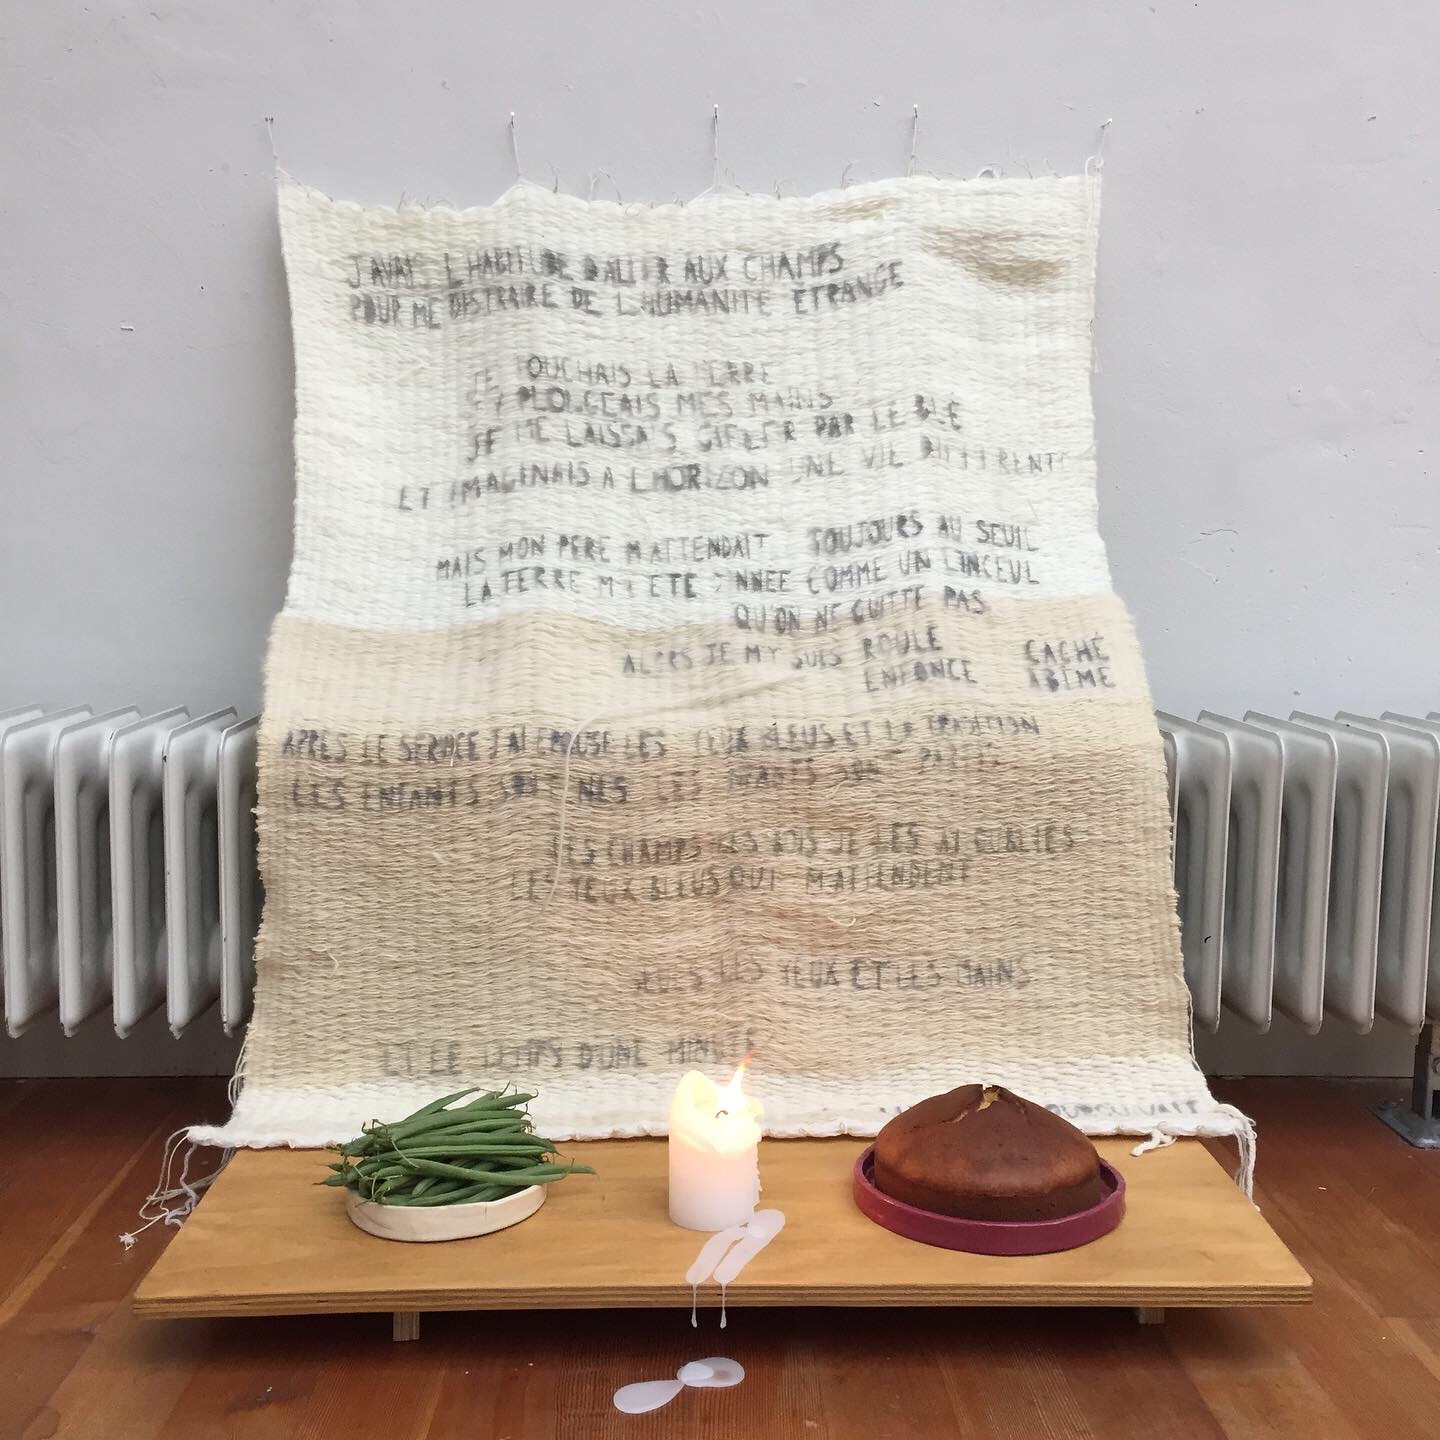 J'AVAIS L'HABITUDE D'ALLER AUX CHAMPS
POUR ME DISTRAIRE DE L'HUMANITÉ ÉTRANGE
JE TOUCHAIS LA TERRE
PLONGEAIS MES MAINS
JE ME LAISSAIS GIFLER PAR LE BLÉ
ET IMAGINAIS A L'HORIZON UNE VIE DIFFERENTE
MAIS MON PERE M'ATTENDAIT TOUJOURS AU SEUIL
LA TERRE M'A ETE DONNEE COMME UN LINCEUL
QU'ON NE QUITTE PAS
ALORS JE M'Y SUIS ROULÉ CACHÉ
ENFONCÉ ABIMÉ
APRES LE SERVICE J'AI EPOUSE LES YEUX BLEUS ET LA TRADITION
LES ENFANTS SONT NES LES ENFANTS SONT PARTIS
LES CHAMPS LES BOIS JE LES AI OUBLIES
LES YEUX BLEUS QUI M'ATTENDENT
LES YEUX ET LES MAINS
ET LE TEMPS D'UNE MINUTE